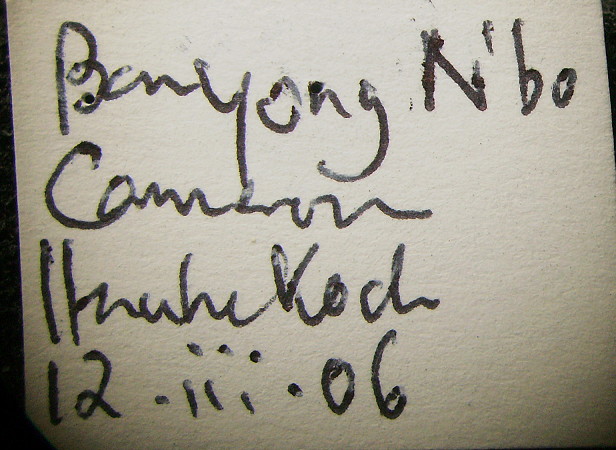 Banyong N'bo
Cameroon
Hauke Koch
12.iii.06